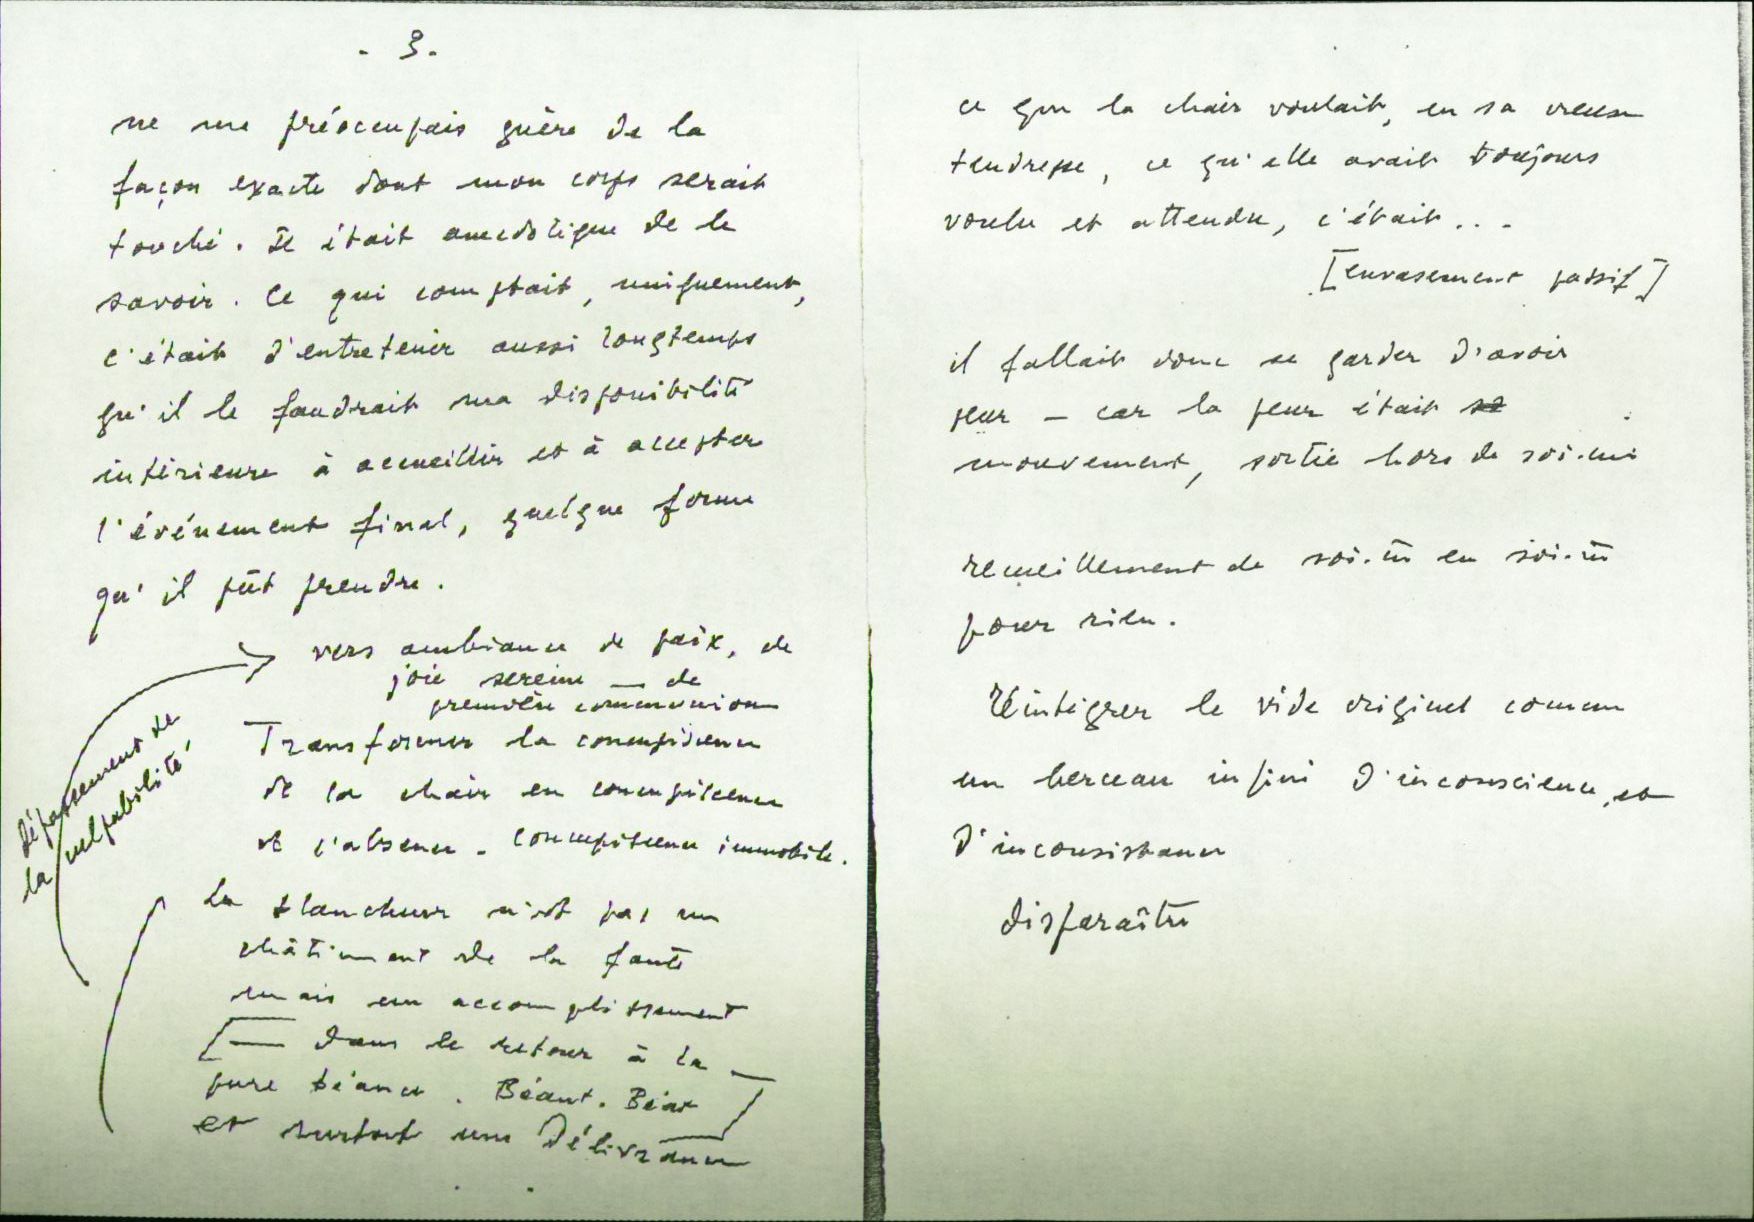 - 3 -
ne me préoccupais guère de la
façon exacte dont mon corps serait
touché. Il était anecdotique de le
savoir. Ce qui comptait, uniquement,
c'était d'entretenir aussi longtemps
qu'il le faudrait ma disponibilité
intérieure à accueillir et à accepter
l'événement final, quelque forme
qu'il pût prendre.
vers ambiance de paix, de
joie sereine — de
première communion
dépassement de
la culpabilité
Transformer la concupiscence
de la chair en concupiscence
de l'absence - concupiscence immobile.
La blancheur n'est pas un
châtiment de la faute
mais un accomplissement
[— dans le retour à la
pure béance. Béant. Béat ]
et surtout une Délivrance
ce que la chair voulait, en sa creuse
tendresse, ce qu'elle avait toujours
voulu et attendu, c'était...
[envasement passif]
il fallait donc se garder d'avoir
peur — car la peur était
mouvement, sortie hors de soi-mê
recueillement de soi-m̄ en soi-m̄
pour rien.
Réintégrer le vide originel comme
un berceau infini d'inconscience, et
d'inconsistance
disparaître